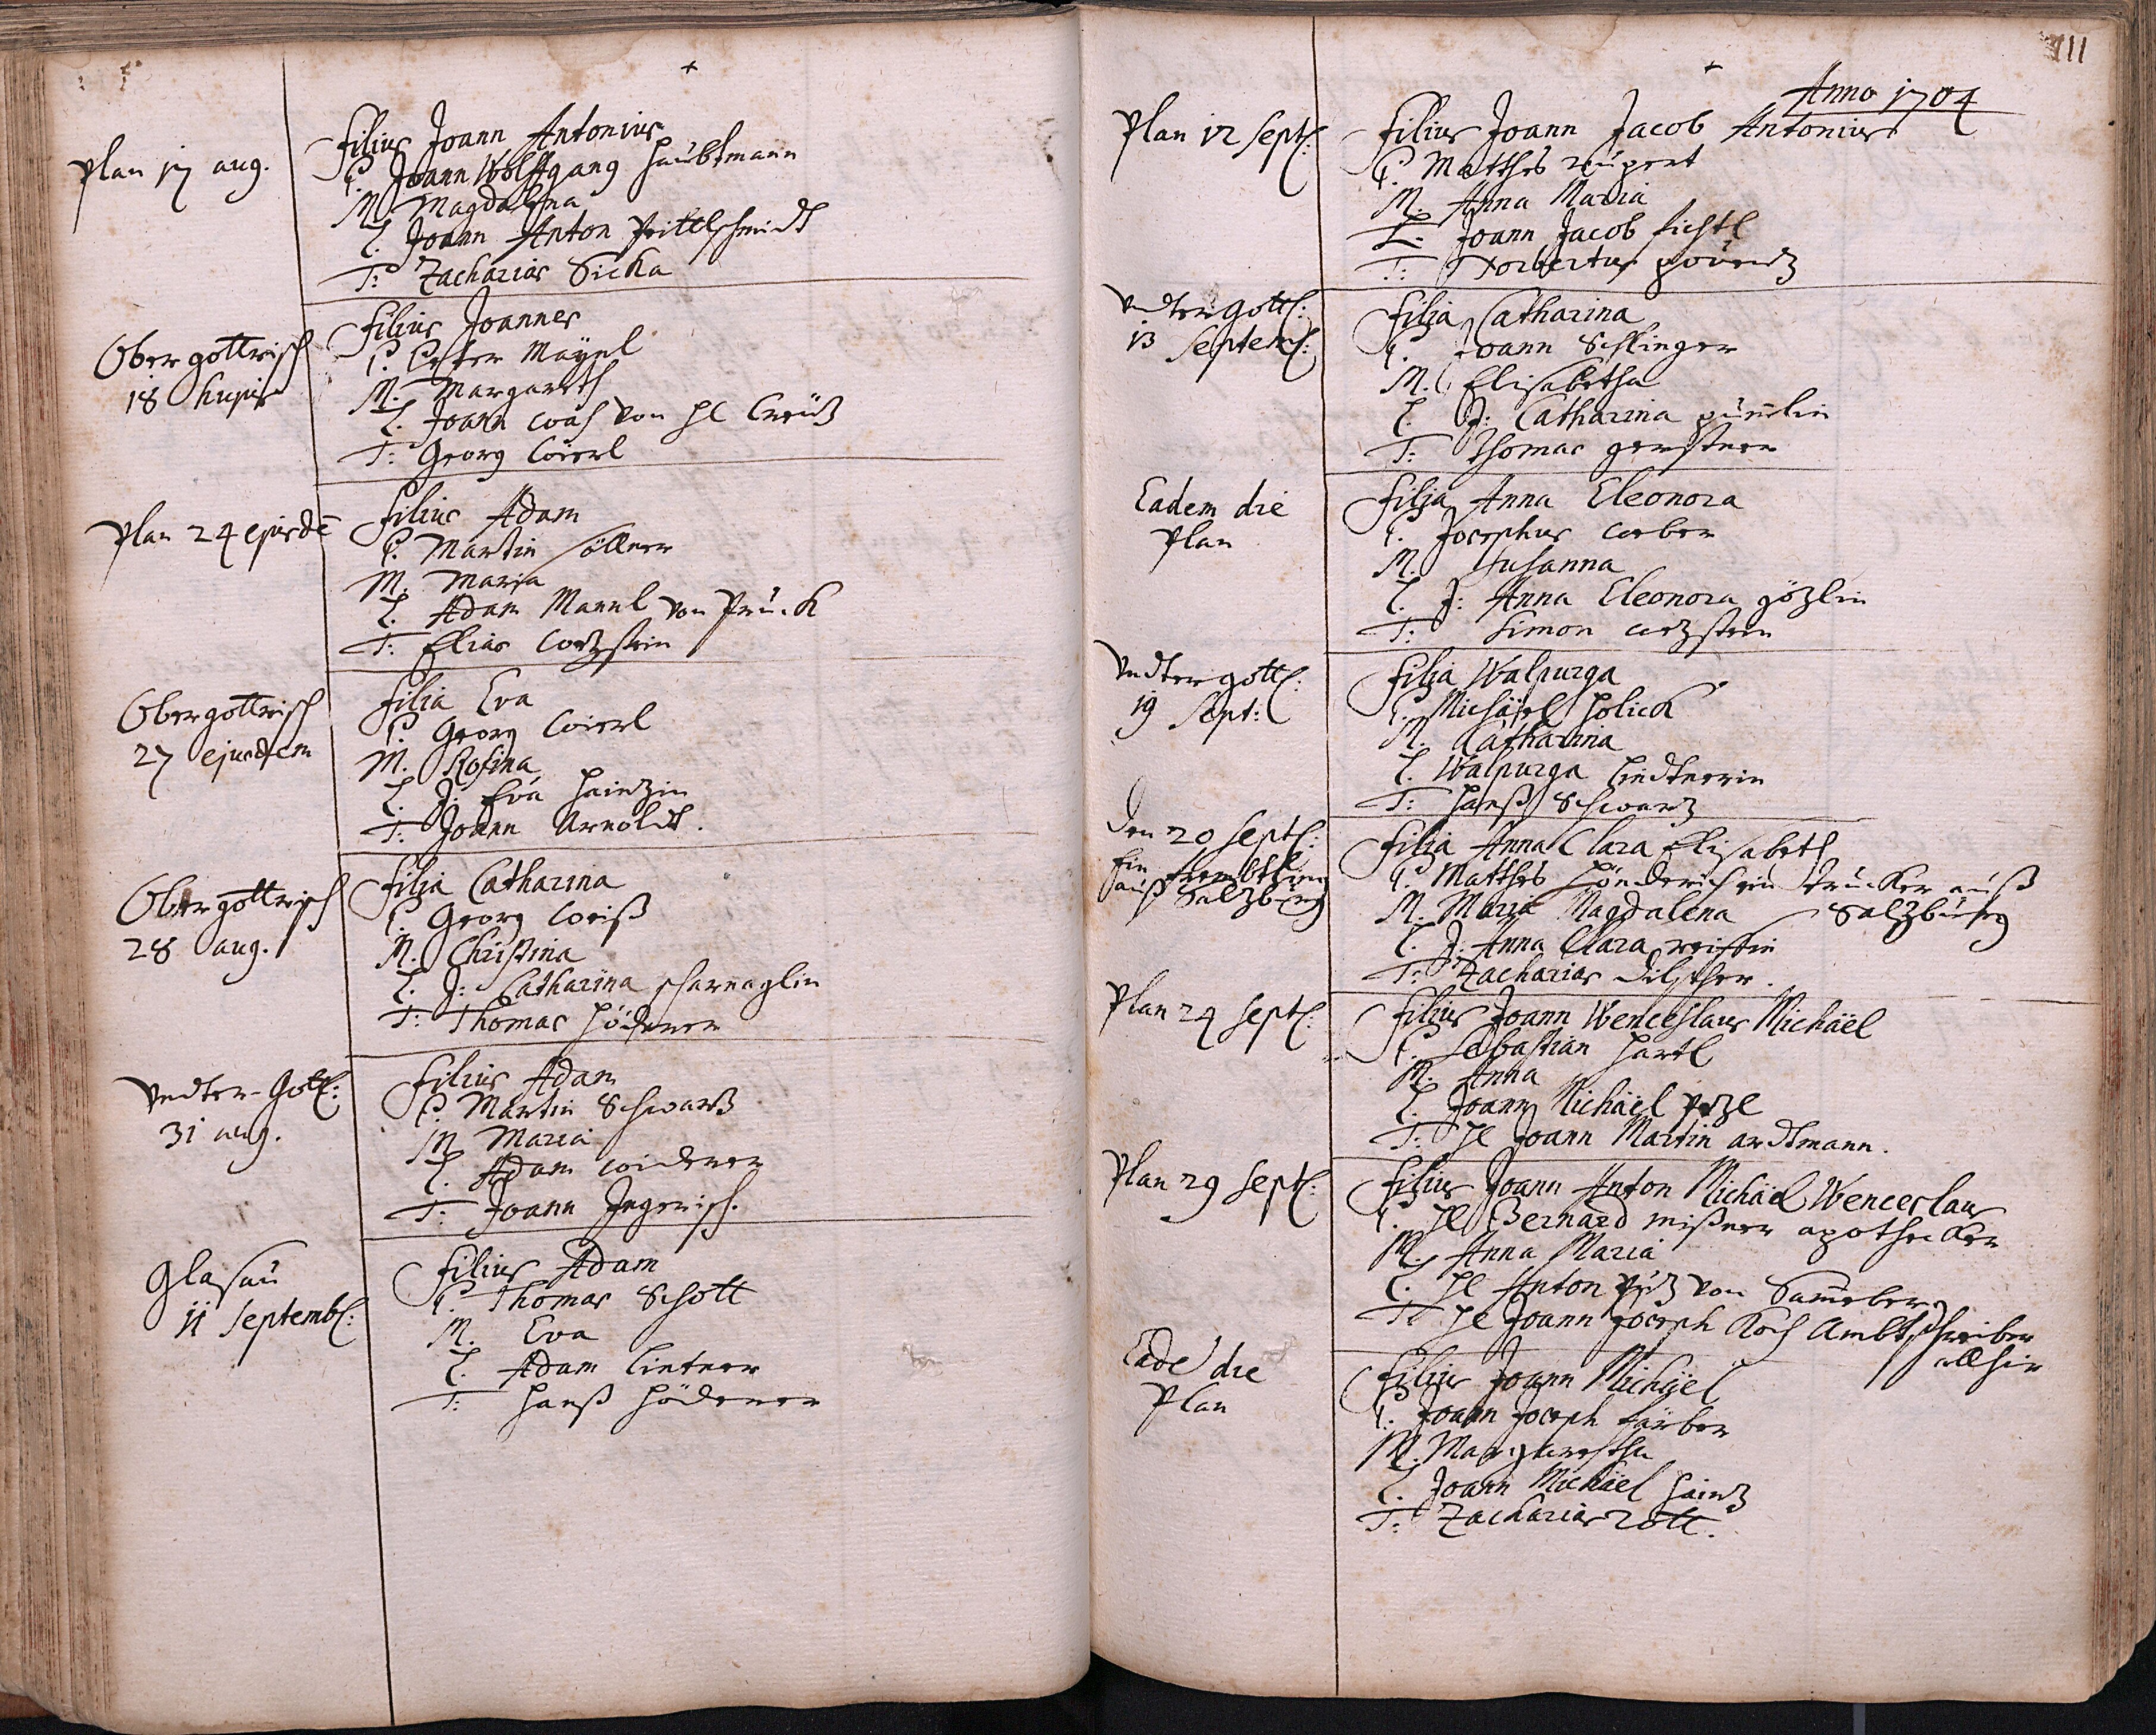 Plan 17 aug.
Filius Joann Antonius
P. Joann Wolffgang Haubtmann
M. Magdalena
L. Joann Anton Peitelschmidt
T: Zacharias Sicka
Obergottrisch
18 hujus
Filius Joannes
P. Peter Maÿxl
M. Margareth
L. Joann von Hl Creutz
T: Georg Weierl
Plan 24 ejusdē
Filius Adam
P. Martin Söllner
M. Maria
L. Adam Mannl von Pruck
T: Elias Wetzstein
Obergottrisch
27 ejusdem
Filia Eva
P. Georg Weierl
M. Rosina
L. J: Eva Haintzin
T: Joann Arnoldt.
Obergottrisch
28 aug.
Filia Catharina
P. Georg Weiß
M. Christina
L. J: Catharina scharnaglin
T: Thomas Höderer
Undter-Gott:
31 aug.
Filius Adam
P. Martin Schwartz
M Maria
L. Adam Widerer
T: Joann Ingerisch.
Glasau
11 Septemb:
Filius Adam
P. Thomas Schott
M. Eva
L. Adam Lintner
T: Hanß Höderer
111
Anno 1704
Plan 12 Sept:
Filius Joann Jacob Antonius
P. Matthes rupert
M. Anna Maria
L. Joann Jacob fichtl
T: Norbertus
Undtergott:
13 Septem:
Filia Catharina
P. Joann Schlinger
M. Elisabetha
L. J: Catharina
T: Thomas gerstner
Eadem die
Plan
Filia Anna Eleonora
P. Josephus Weber
M. Susanna
L. J: Anna Eleonora götzlin
T: Simon Wetzstein
Undtergott:
19 Sept:
Filia Walpurga
P. Michäel Holick
M. Catharina
L. Walpurga Lindtnerin
T: Hanß Schwartz
Den 20 Sept:
Ein frembtling
auß Saltzburg
Filia Anna Clara Elisabeth
P. Matthes Hönderich ein Trucker auß
M. Maria Magdalena Saltzburg
L. J. Anna Clara
T: Zacharias Dilscher.
Plan 24 Sept:
Filius Joann Wenceslaus Michäel
P. Sebastian Hartl
M. Anna
L. Joann Michäel
T: Hl Joann Martin ardtmann.
Plan 29 Sept:
Filius Joann Anton Michäel Wenceslaus
P. Hl Bernard mißner apothecker
M. Anna Maria
L. Hl Anton von
T: Hl Joann Joseph Koch Ambtschreiber
allhier
Eadē die
Plan
Filius Joann Michäel
P. Joann Joseph färber
M. Margaretha
L. Joann Michäel Haintz
T: Zacharias rott.